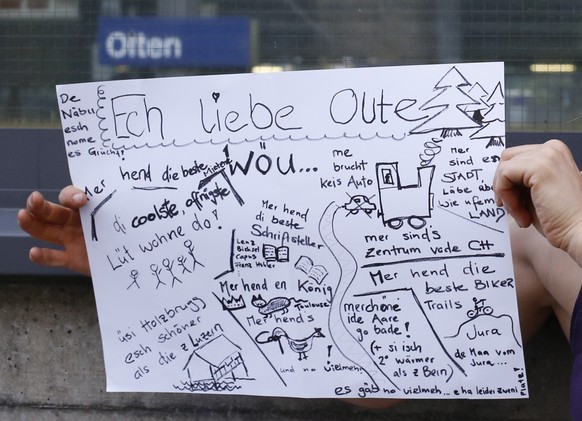 Olten
De
Nabu
esch
nome
es Grücht!
Ech liebe Oute
wöu...
Mer hend die beste Mieter
di coolste, affrigste
Lüt wohne do!
me
brucht
keis Auto
Mer
sind es
STADT,
Läbe aber
wie ufem
LAND
mer sind's
Zentrum vode CH
Mer hend
di beste
Schriftsteller
Lenz
Bichsel
Capus
Franz Hohler
Mer hend en König
Toulouse
Mer hend's
und no vielmeh
üsi Holzbrugg
esch schöner
als die z Luzern
merchöne
ide Aare
go bade!
(+ si isch
2° wärmer
als z Bern)
Mer hend die
beste Biker
Trails
Jura
de Haa vom
Jura...
es gäb no vielmeh... eha leider zweni
Platz!